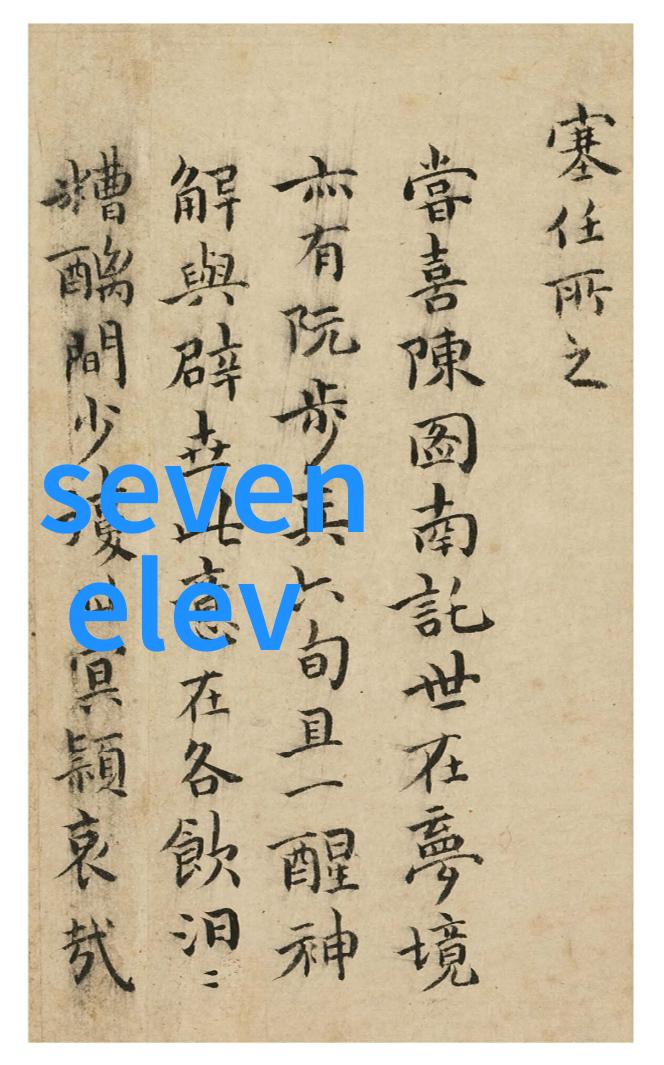 塞任所之
嘗喜陳圖南託世在夢境
亦有阮步兵六旬且一醒神
解與辟世此意在各飲汩〻
糟醨間少瓊冥穎哀哉
seven
elev